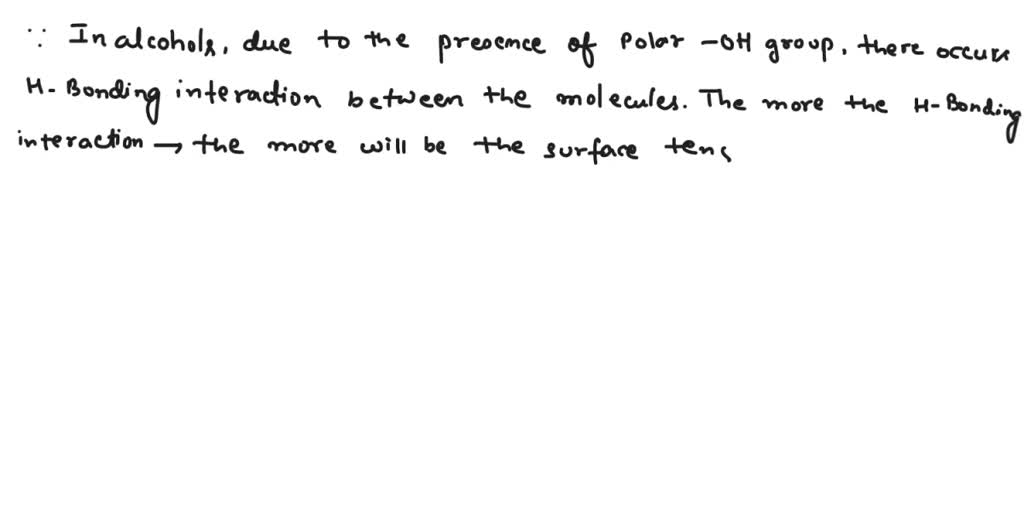 ∵ In alcohols, due to the presence of Polar -OH group, there occurs
H-Bonding interaction between the molecules. The more the H-Bonding
interaction → the more will be the surface tens